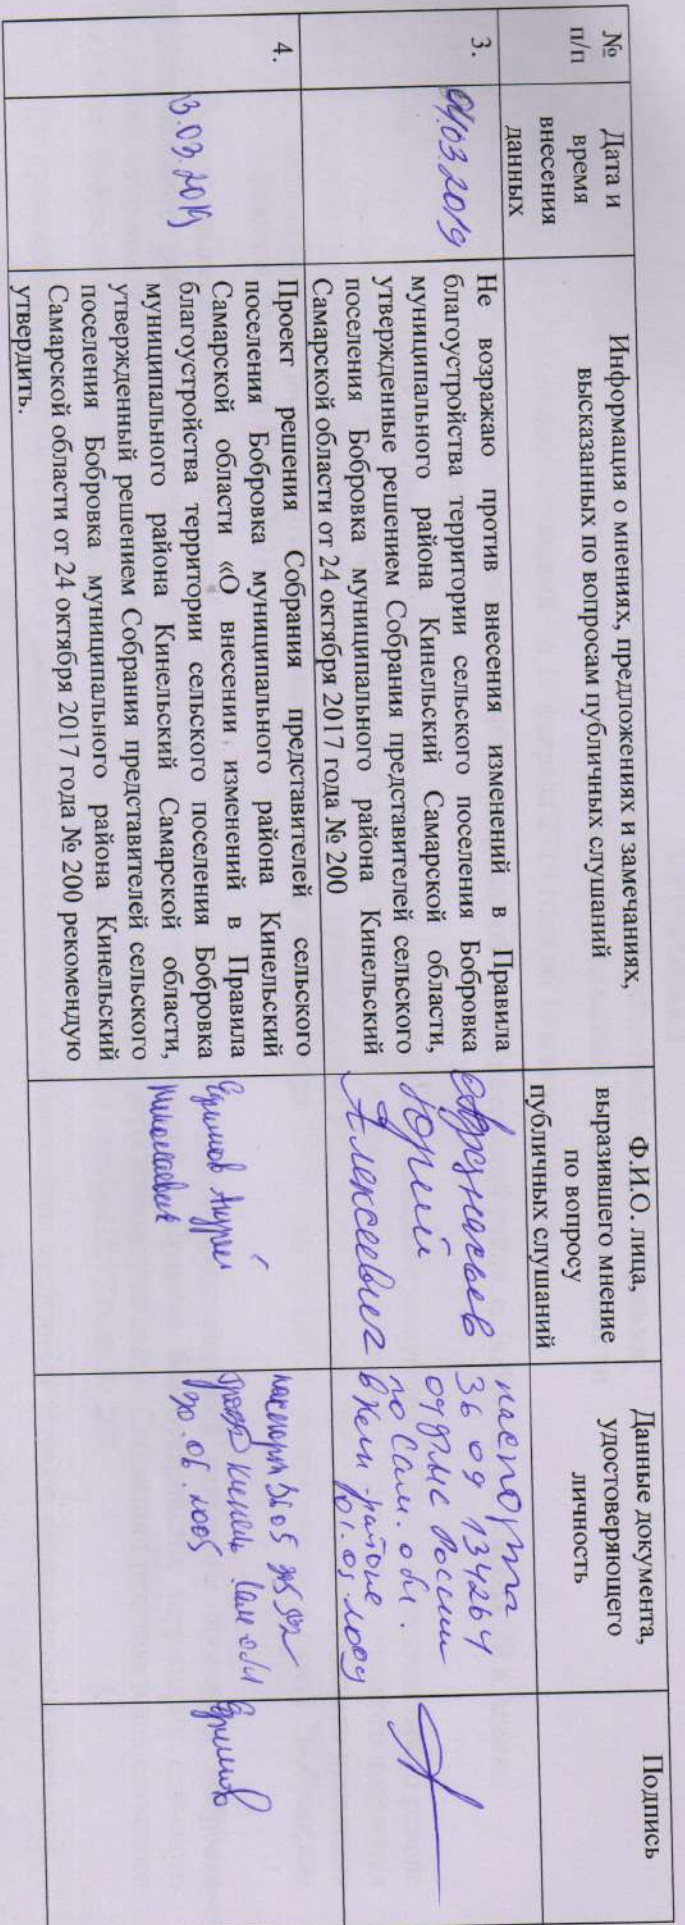 №
п/п
Дата и
время
внесения
данных
Информация о мнениях, предложениях и замечаниях,
высказанных по вопросам публичных слушаний
Ф.И.О. лица,
выразившего мнение
по вопросу
публичных слушаний
Данные документа,
удостоверяющего
личность
Подпись
3.
04.03.2019
Не возражаю против внесения изменений в Правила
благоустройства территории сельского поселения Бобровка
муниципального района Кинельский Самарской области,
утвержденные решением Собрания представителей сельского
поселения Бобровка муниципального района Кинельский
Самарской области от 24 октября 2017 года № 200
Юрий
Алексеевич
паспорт
3609 134264
России
по Сам. обл.
в Кин. районе
4.
13.03.2019
Проект решения Собрания представителей сельского
поселения Бобровка муниципального района Кинельский
Самарской области «О внесении изменений в Правила
благоустройства территории сельского поселения Бобровка
муниципального района Кинельский Самарской области,
утвержденный решением Собрания представителей сельского
поселения Бобровка муниципального района Кинельский
Самарской области от 24 октября 2017 года № 200 рекомендую
утвердить.
Андрей
Николаевич
паспорт 3605
Кинель Сам обл